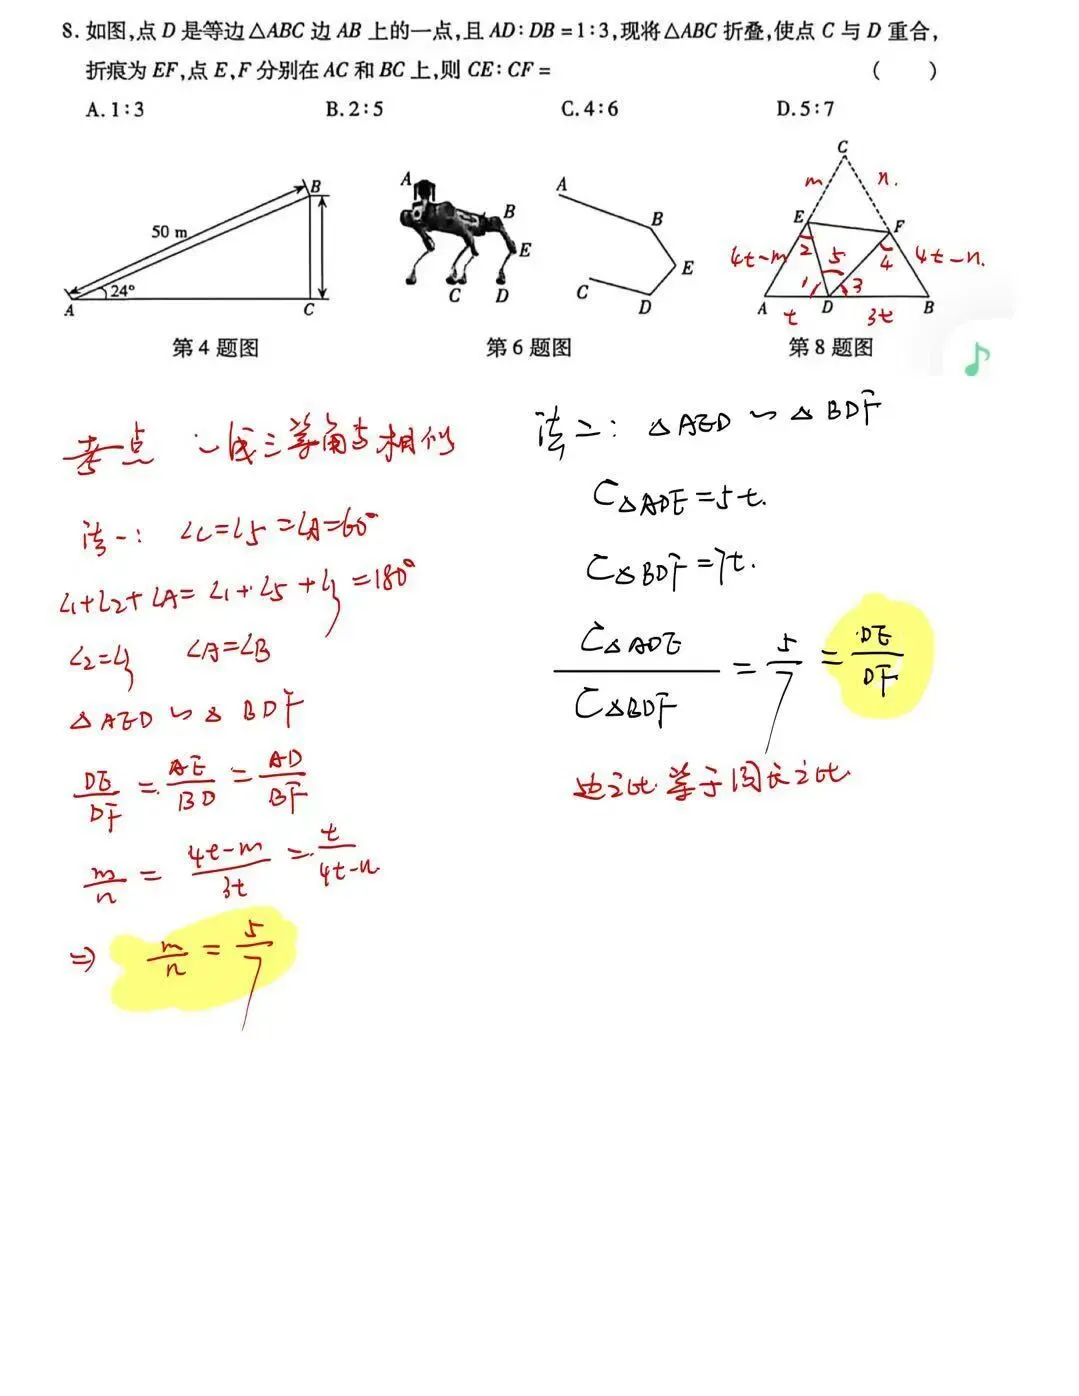 8. 如图,点 D 是等边△ABC 边 AB 上的一点,且 AD:DB=1:3,现将△ABC 折叠,使点 C 与 D 重合,
折痕为 EF,点 E,F 分别在 AC 和 BC 上,则 CE:CF= ( )
A. 1:3 B. 2:5 C. 4:6 D. 5:7
A 50 m 24° B C
第 4 题图
A B E C D
A B E D C
第 6 题图
C
m n.
E F
4t-m 2 5 4 4t-n.
1 3
A t D 3t B
第 8 题图
考点 一线三等角与相似
法一: ∠C=∠5=∠A=60°
∠1+∠2+∠A=∠1+∠5+∠3=180°
∠2=∠3 ∠A=∠B
△AED∽△BDF
DE/DF = AE/BD = AD/BF
m/n = 4t-m/3t = t/4t-n
⇒ m/n = 5/7
法二: △AED∽△BDF
C△ADE=5t.
C△BDF=7t.
C△ADE/C△BDF = 5/7 = DE/DF
边之比等于周长之比